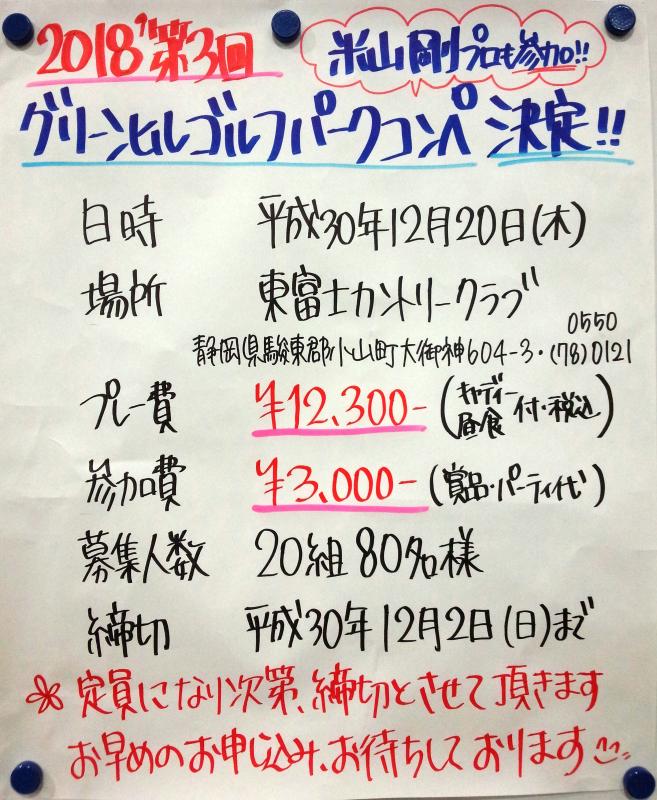 2018'第3回
米山剛プロも参加!!
グリーンヒルゴルフパークコンペ決定!!
日時 平成30年12月20日(木)
場所 東富士カントリークラブ
静岡県駿東郡小山町大御神604-3・0550(78)0121
プレー費 ¥12,300-(キャディー昼食付・税込)
参加費 ¥3,000-(賞品・パーティ代)
募集人数 20組80名様
締切 平成30年12月2日(日)まで
※定員になり次第、締切とさせて頂きます
お早めのお申し込み、お待ちしております